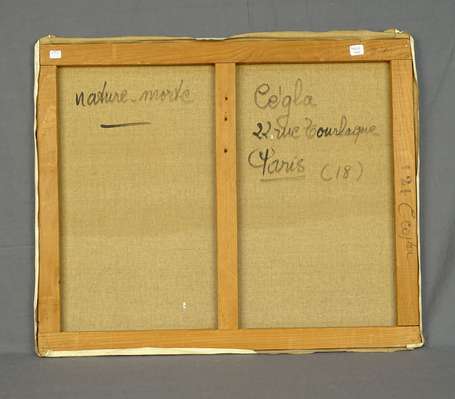 nature-morte
Cégla
22 rue Tourlaque
Paris (18)